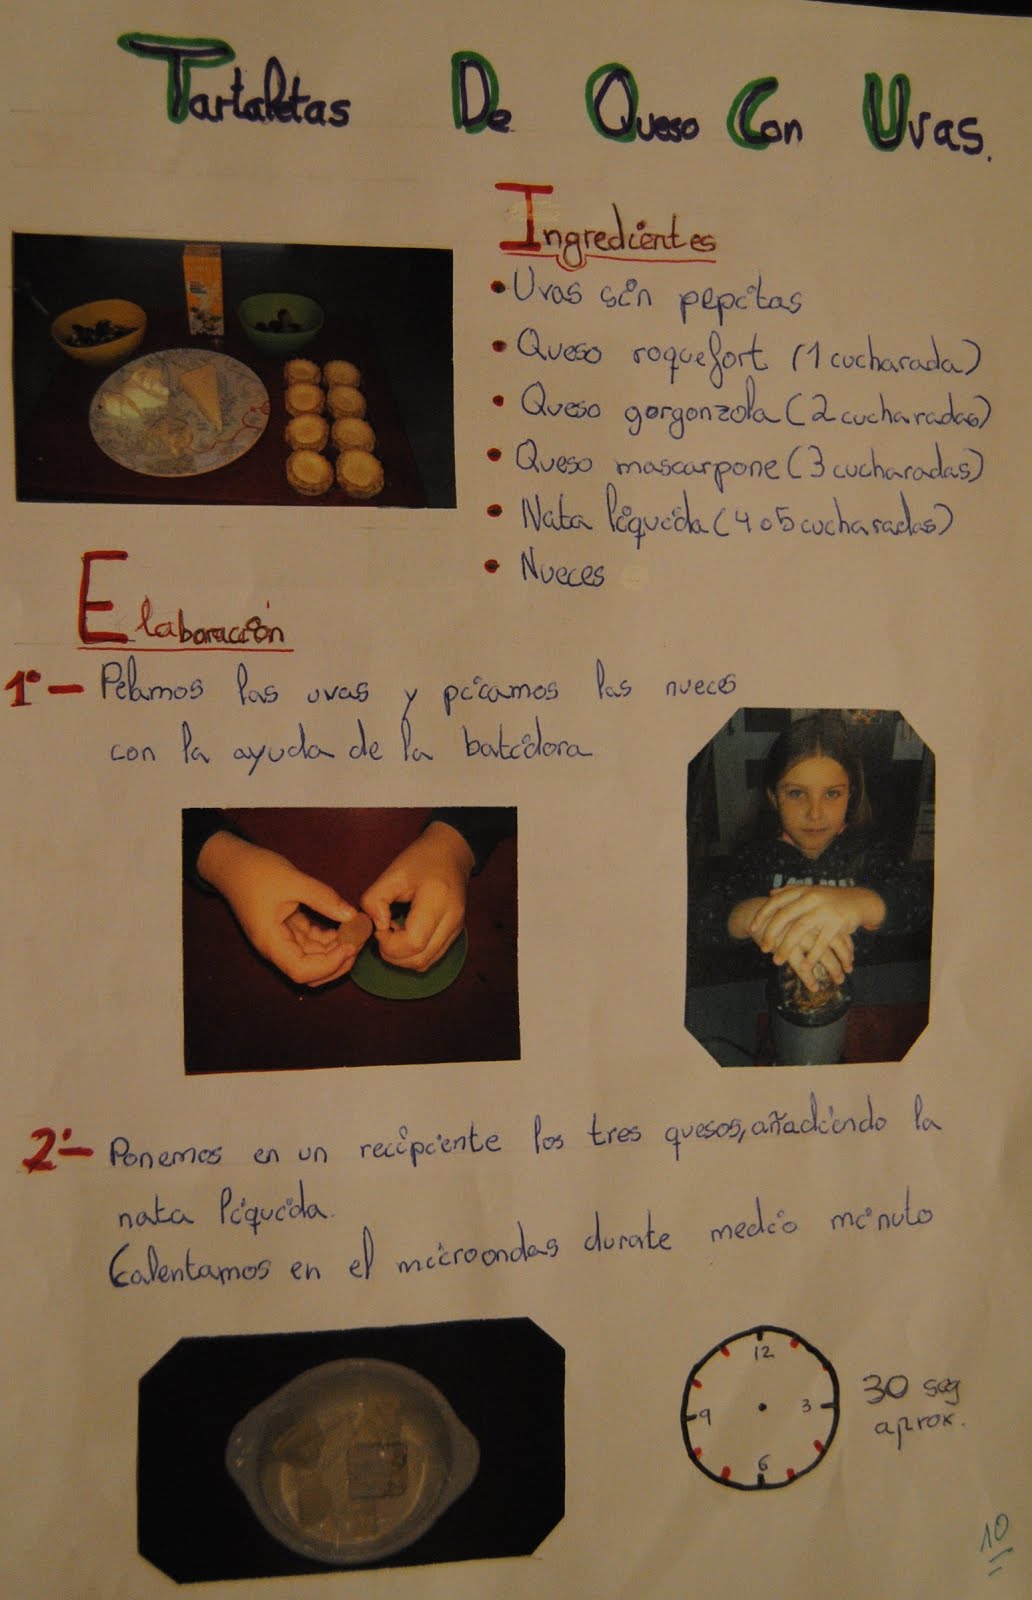 Tartaletas De Queso Con Uvas.
Ingredientes
• Uvas sin pepitas
• Queso roquefort (1 cucharada)
• Queso gorgonzola (2 cucharadas)
• Queso mascarpone (3 cucharadas)
• Nata liquida (4 o 5 cucharadas)
• Nueces
Elaboración
1º- Pelamos las uvas y picamos las nueces
con la ayuda de la batidora
2º- Ponemos en un recipiente los tres quesos, añadiendo la
nata liquida.
Calentamos en el microondas durate medio minuto
12
3
6
9
30 seg
aprox.
10